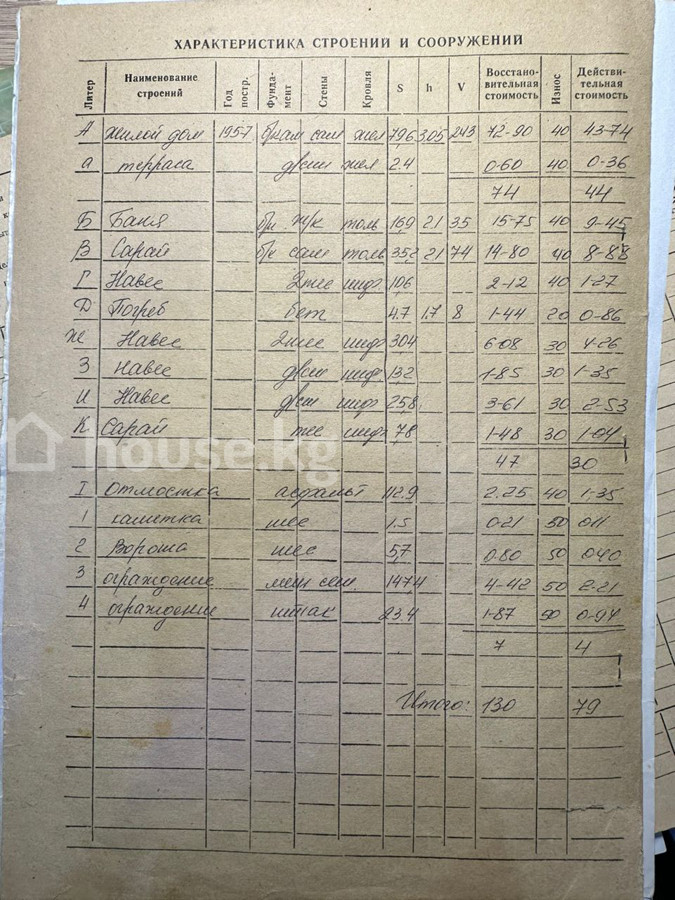 ХАРАКТЕРИСТИКА СТРОЕНИЙ И СООРУЖЕНИЙ
Литер Наименование строений Год постр. Фунда-мент Стены Кровля S h V Восстано-вительная стоимость Износ Действи-тельная стоимость
А жилой дом 1957 сам жел 79,6 3,05 243 72-90 40 43-74
а терраса жел 2.4 0-60 40 0-36
74 44
Б Баня ж/к толь 16,9 2,1 35 15-75 40 9-45
В Сарай сам толь 35,2 2,1 74 14-80 40 8-88
Г Навес шиф 10,6 2-12 40 1-27
Д Погреб бет 4.7 1.7 8 1-44 20 0-86
Ж Навес шиф 30,4 6-08 30 4-26
З Навес шиф 13,2 1-85 30 1-35
И Навес шиф 25,8 3-61 30 2-53
К Сарай тес шиф 7,8 1-48 30 1-04
47 30
house.kg
I Отмостка асфальт 112.9 2.25 40 1-35
1 калитка тес 1.5 0-21 50 0-11
2 Ворота тес 5,7 0-80 50 0-40
3 ограждение 147,4 4-42 50 2-21
4 ограждение штак 23.4 1-87 50 0-94
7 4
Итого: 130 79